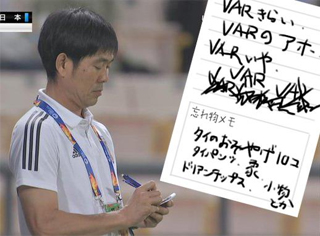 日 本
VARきらい
VARのアホ
VARいや
VAR VAR
忘れ物メモ
タイのおみやげ10コ
タイパンツ
ドリアンチップス 小物
とか